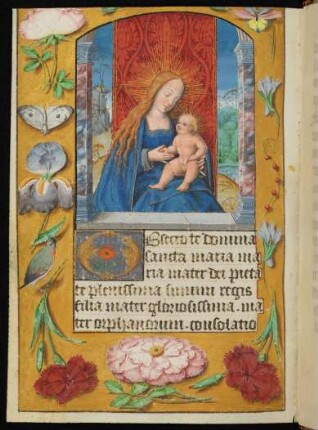 Obsecro te domina
sancta maria ma
ria mater dei pieta
te plenissima summi regis
filia mater gloriosissima. ma
ter orphanorum. consolatio